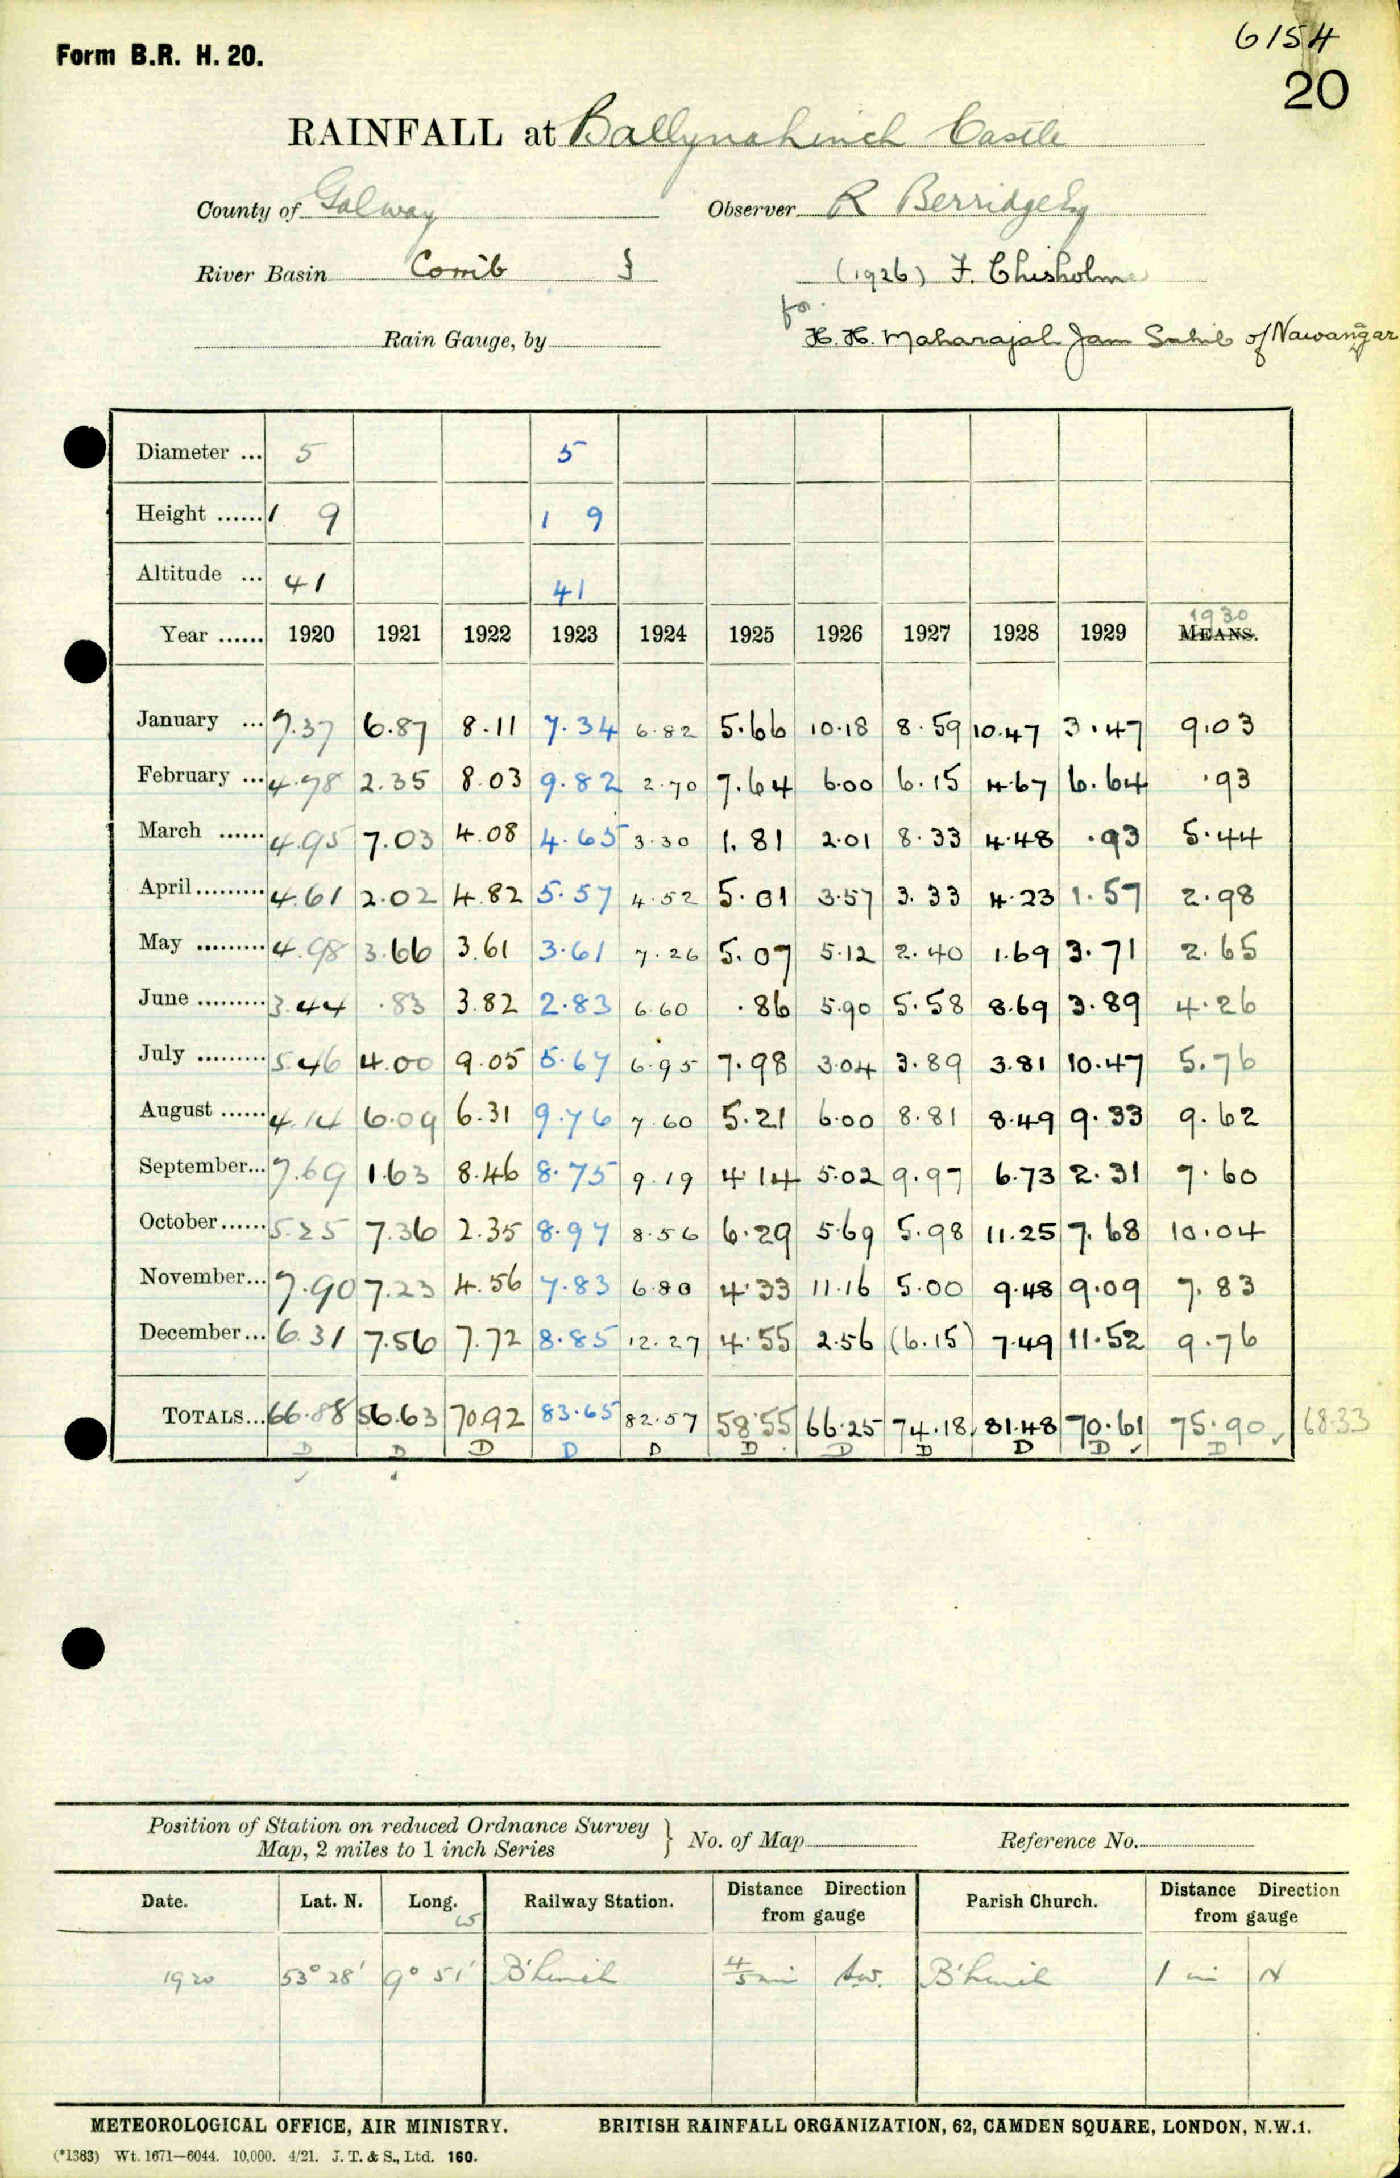 6154
Form B.R. H. 20.
20
RAINFALL at Ballynahinch Castle
County of Galway Observer R Berridge Esq
River Basin Corrib (1926) F. Chisholm
for
Rain Gauge, by H. H. Maharajah Jam Sahib of Nawanagar
Diameter ... 5 5
Height ...... 1 9 1 9
Altitude ... 41 41
1930
Year ...... 1920 1921 1922 1923 1924 1925 1926 1927 1928 1929 MEANS.
January ... 7.37 6.87 8.11 7.34 6.82 5.66 10.18 8.59 10.47 3.47 9.03
February ... 4.78 2.35 8.03 9.82 2.70 7.64 6.00 6.15 4.67 6.64 .93
March ...... 4.95 7.03 4.08 4.65 3.30 1.81 2.01 8.33 4.48 .93 5.44
April ......... 4.61 2.02 4.82 5.57 4.52 5.01 3.57 3.33 4.23 1.57 2.98
May ......... 4.98 3.66 3.61 3.61 7.26 5.07 5.12 2.40 1.69 3.71 2.65
June ......... 3.44 .83 3.82 2.83 6.60 .86 5.90 5.58 8.69 3.89 4.26
July ......... 5.46 4.00 9.05 5.67 6.95 7.98 3.04 3.89 3.81 10.47 5.76
August ...... 4.14 6.09 6.31 9.76 7.60 5.21 6.00 8.81 8.49 9.33 9.62
September... 7.69 1.63 8.46 8.75 9.19 4.14 5.02 9.97 6.73 2.31 7.60
October ...... 5.25 7.36 2.35 8.97 8.56 6.29 5.69 5.98 11.25 7.68 10.04
November... 7.90 7.23 4.56 7.83 6.80 4.33 11.16 5.00 9.48 9.09 7.83
December ... 6.31 7.56 7.72 8.85 12.27 4.55 2.56 (6.15) 7.49 11.52 9.76
TOTALS... 66.88 56.63 70.92 83.65 82.57 58.55 66.25 74.18 81.48 70.61 75.90 68.33
D D D D D D D D D D D
Position of Station on reduced Ordnance Survey
Map, 2 miles to 1 inch Series } No. of Map Reference No.
Date. Lat. N. Long. W Railway Station. Distance Direction from gauge Parish Church. Distance Direction from gauge
1920 53° 28' 9° 51' B'hinch 4/5 mi SW. B'hinch 1 mi N
METEOROLOGICAL OFFICE, AIR MINISTRY. BRITISH RAINFALL ORGANIZATION, 62, CAMDEN SQUARE, LONDON, N.W.1.
(*1383) Wt. 1671—6044. 10,000. 4/21. J. T. & S., Ltd. 160.